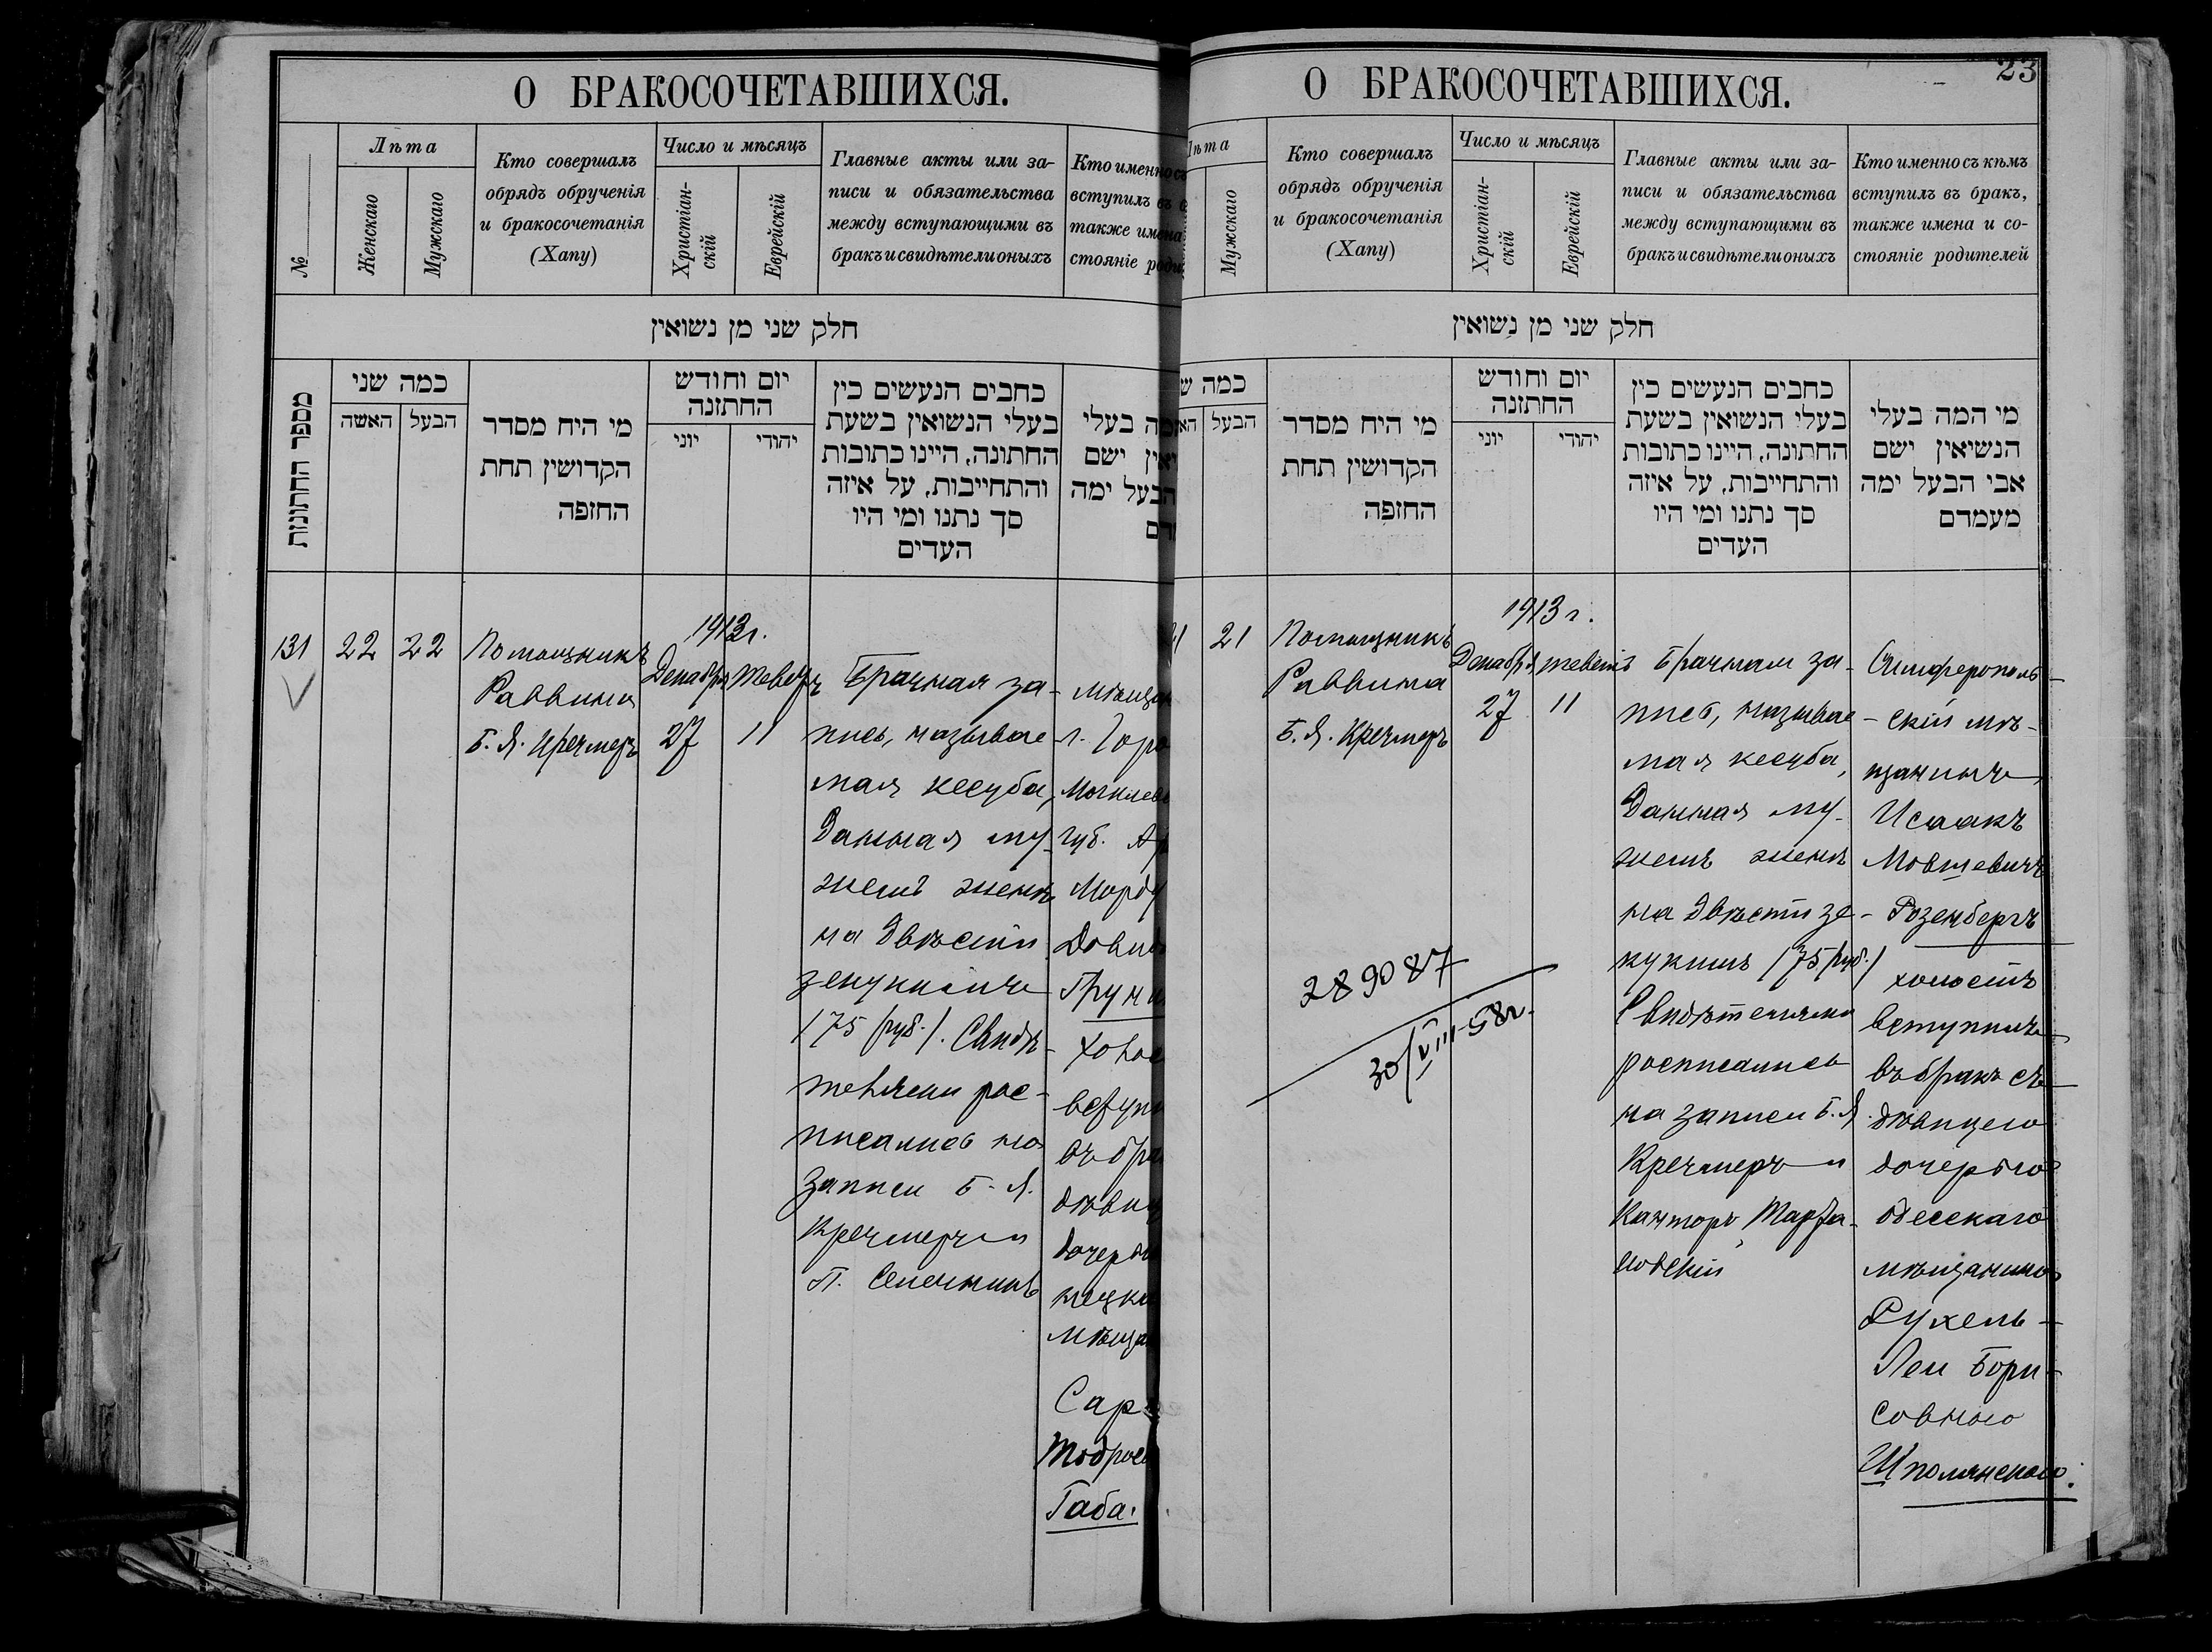 О БРАКОСОЧЕТАВШИХСЯ.
№
Лѣта
Женскаго
Мужскаго
Кто совершалъ
обрядъ обрученія
и бракосочетанія
(Хапу)
Число и мѣсяцъ
Христіан-
скій
Еврейскій
Главные акты или за-
писи и обязательства
между вступающими въ
бракъ и свидѣтели оныхъ
Кто именно съ
вступилъ въ
также имена
стояніе
חלק שני מן נשואין
מספר החתונות
כמה שני
האשה
הבעל
מי היח מסדר
הקדושין תחת
החזפה
יום וחודש
החתזנה
יוני
יהודי
כחבים הנעשים כין
בעלי הנשואין בשעת
החתונה, היינו כתובות
והתחייבות, על איזה
סך נתנו ומי היו
העדים
בעלי
ישם
הבעל ימה
131
22
22
Помощникъ
Раввина
Б. Я. Кречмеръ
1913 г.
Декабря
27
Теветъ
11
Брачная за-
пись, называе-
мая кесуба,
данная му-
жемъ женѣ
на двѣсти
зекукимъ
(75 руб.). Свидѣ-
телями рос-
писались на
записи Б. Я.
Кречмеръ и
П. Сепечникъ
г. Горо
губ.
въ бра
Тодрос
Габа.
О БРАКОСОЧЕТАВШИХСЯ.
23
Лѣта
Мужскаго
Кто совершалъ
обрядъ обрученія
и бракосочетанія
(Хапу)
Число и мѣсяцъ
Христіан-
скій
Еврейскій
Главные акты или за-
писи и обязательства
между вступающими въ
бракъ и свидѣтели оныхъ
Кто именно съ кѣмъ
вступилъ въ бракъ,
также имена и со-
стояніе родителей
חלק שני מן נשואין
כמה
הבעל
מי היח מסדר
הקדושין תחת
החזפה
יום וחודש
החתזנה
יוני
יהודי
כחבים הנעשים כין
בעלי הנשואין בשעת
החתונה, היינו כתובות
והתחייבות, על איזה
סך נתנו ומי היו
העדים
מי המה בעלי
הנשיאין ישם
אבי הבעל ימה
מעמדם
21
Помощникъ
Раввина
Б. Я. Кречмеръ
1913 г.
Декабря
27
теветъ
11
Брачная за-
пись, называе-
мая кесуба,
данная му-
жемъ женѣ
на двѣсти зе-
кукимъ (75 руб.)
Свидѣтелями
росписались
на записи Б. Я.
Кречмеръ и
Канторъ
Симферополь-
скій мѣ-
щанинъ
Исаакъ
Мовшевичъ
Розенбергъ
холостъ
вступилъ
въ бракъ съ
дѣвицею
дочерью
одесскаго
мѣщанина
Рухель-
Леи Бори-
совною
Шполянскою.
289087
30/VIII-58г.